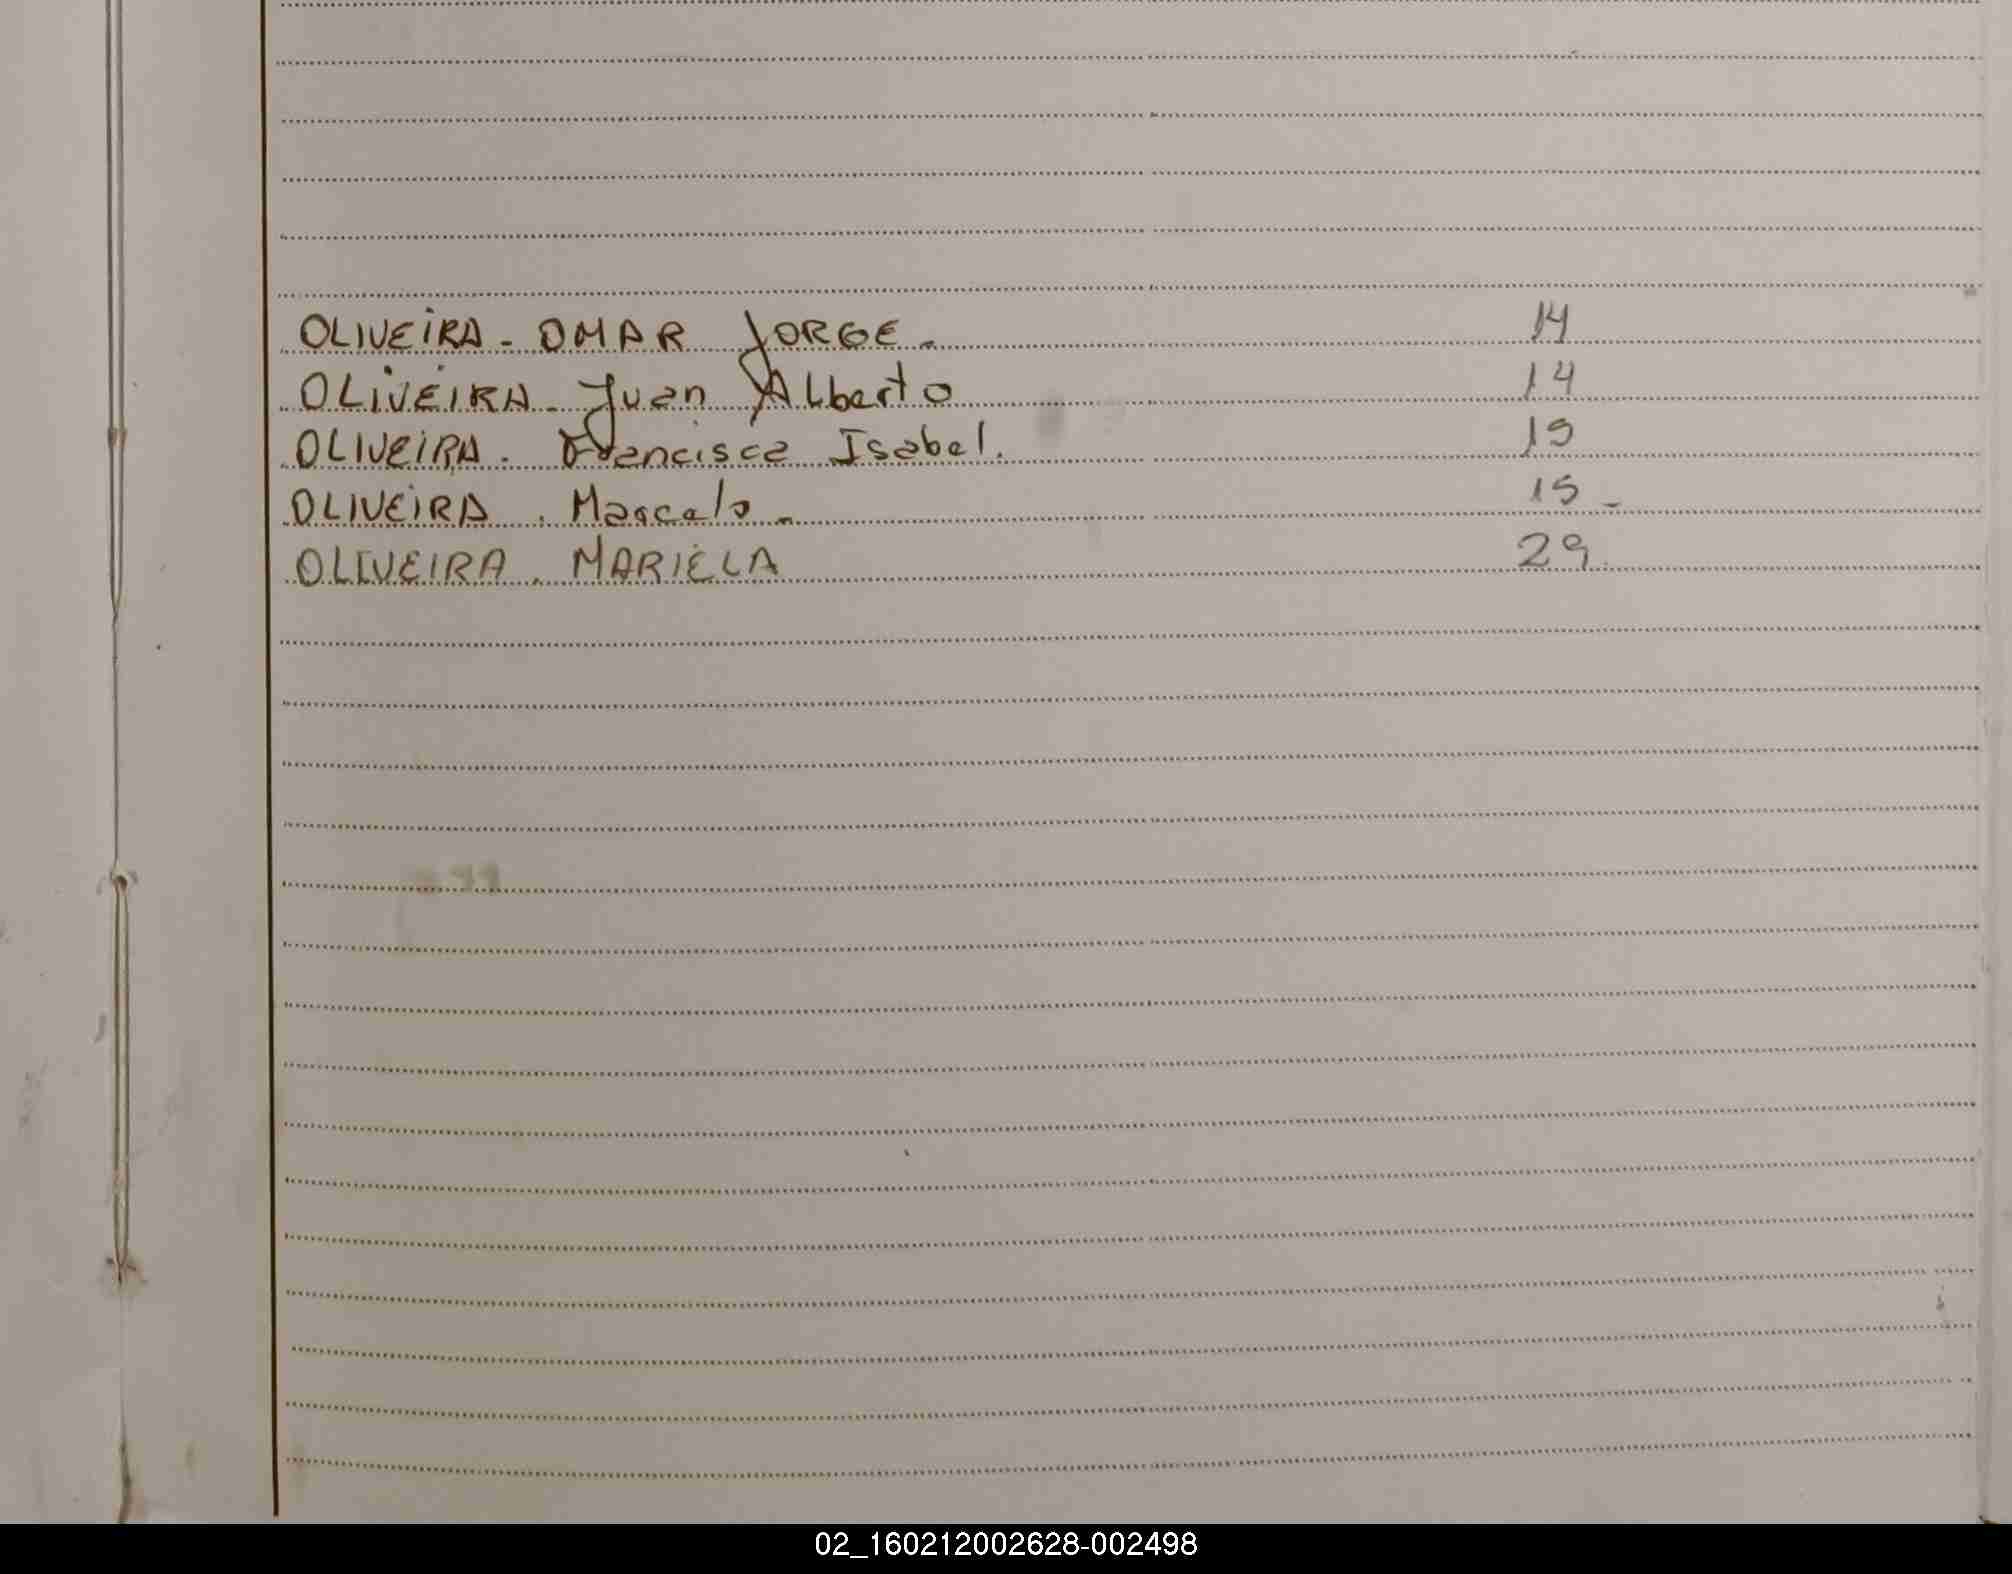 OLIVEIRA - OMAR JORGE - 14
OLIVEIRA - Juan Alberto 14
OLIVEIRA. Francisca Isabel. 15
OLIVEIRA. Marcelo - 15 -
OLIVEIRA. MARIELA 29.
02_160212002628-002498